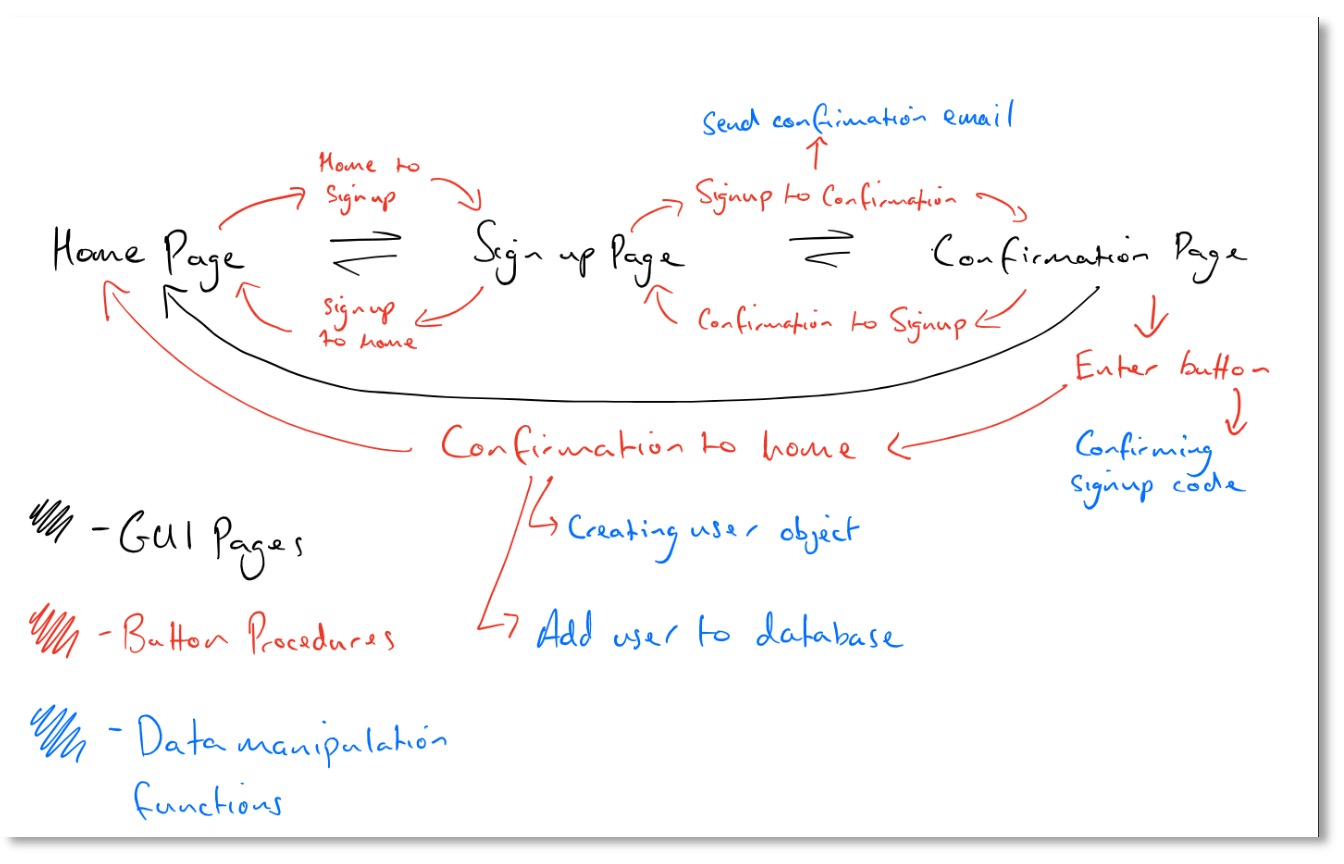 Send confirmation email
Home to
Signup
Signup to Confirmation
Home Page
Sign up Page
Confirmation Page
Signup
to home
Confirmation to Signup
Enter button
Confirmation to home
Confirming
signup code
- GUI Pages
Creating user object
- Button Procedures
Add user to database
- Data manipulation
functions